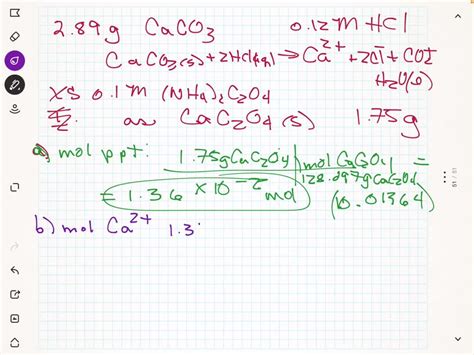 2.89g CaCO3 0.12M HCl
CaCO3(s) + 2HCl(aq) → Ca2+ + 2Cl- + CO2↑
H2O(l)
XS 0.1M (NH4)2C2O4
as CaC2O4(s) 1.75g
a) mol ppt: 1.75gCaC2O4 | mol CaC2O4 =
128.097gCaC2O4
= 1.36 x10-2 mol (0.01364)
b) mol Ca2+ 1.3
51 / 51